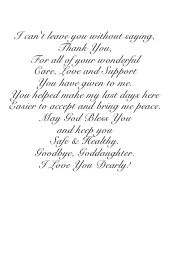 I can't leave you without saying,
Thank You,
For all of your wonderful
Care, Love and Support
You have given to me.
You helped make my last days here
Easier to accept and bring me peace.
May God Bless You
and keep you
Safe & Healthy.
Goodbye, Goddaughter.
I Love You Dearly!